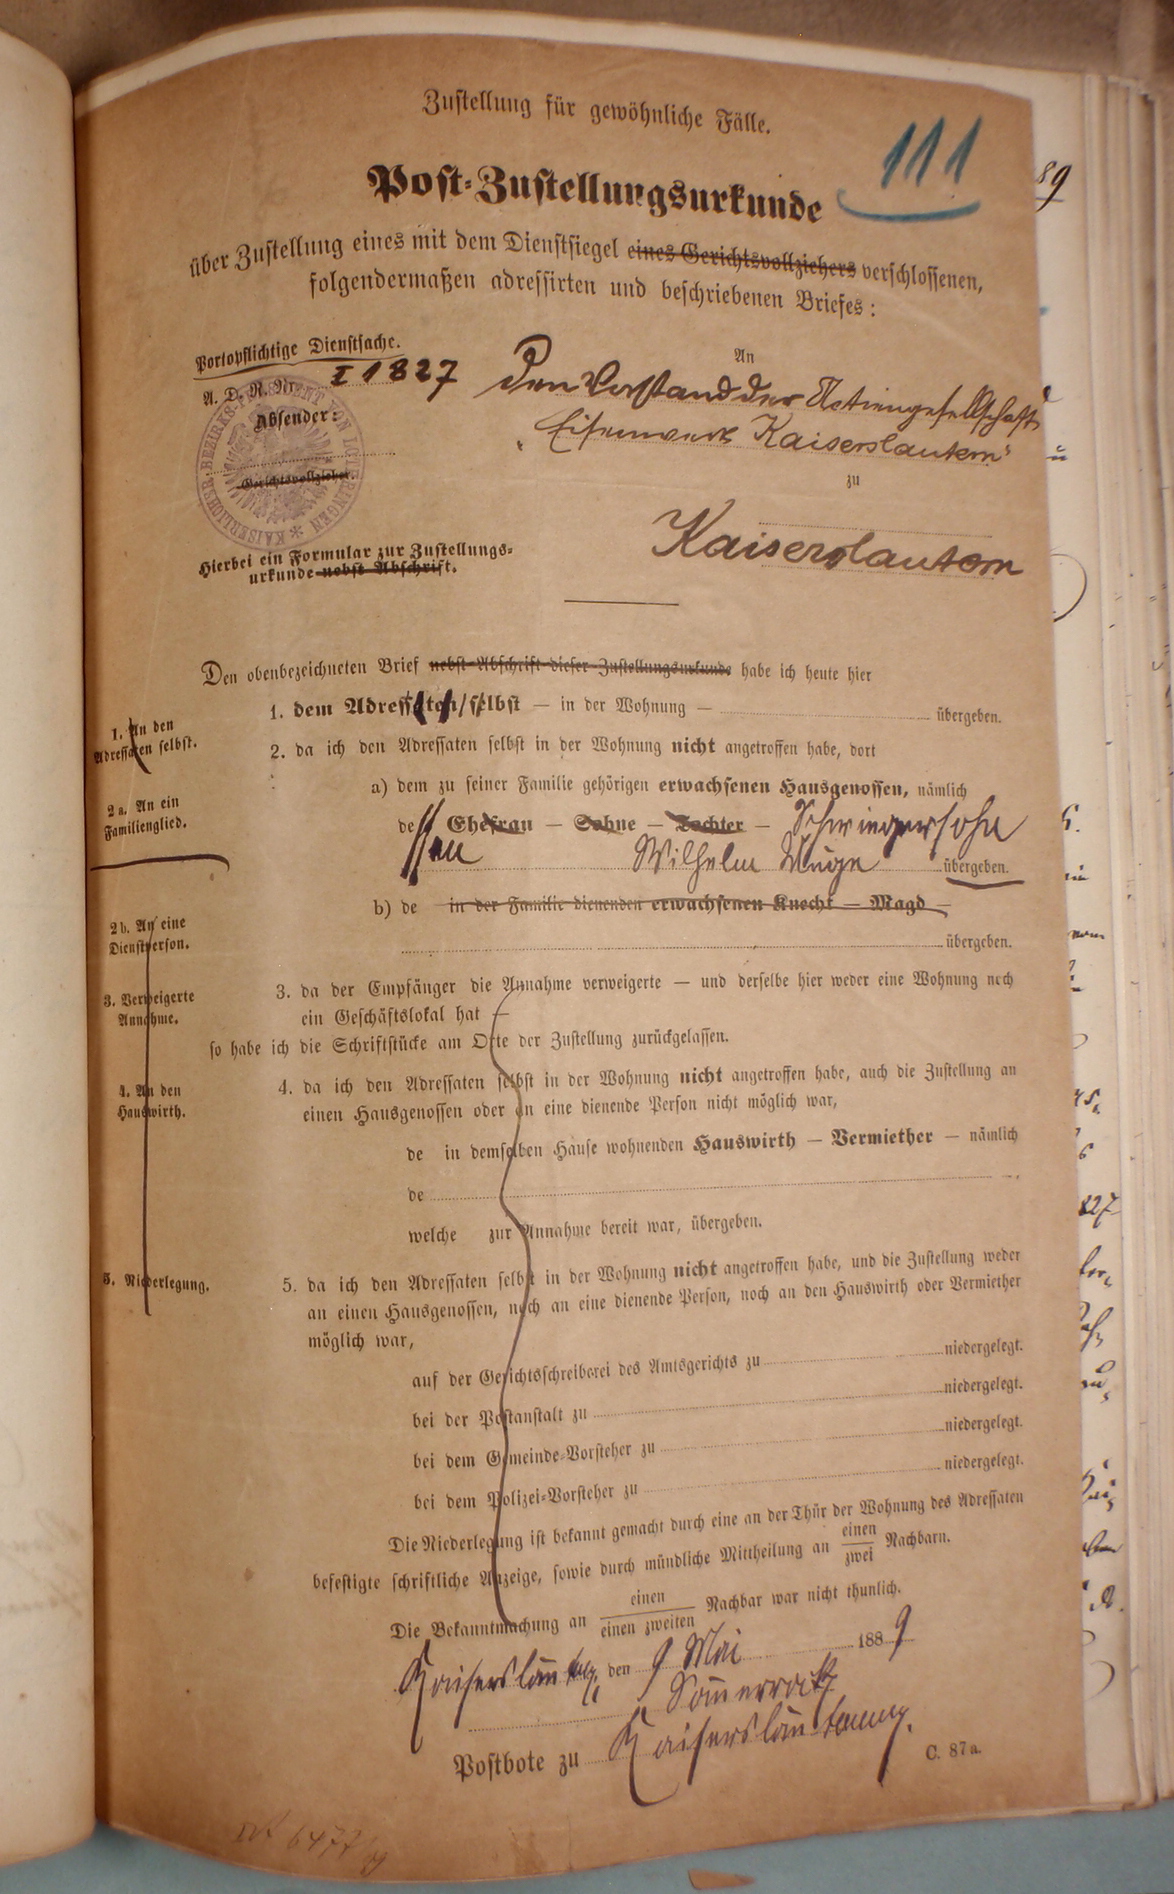 Zustellung für gewöhnliche Fälle.
111
Post-Zustellungsurkunde
über Zustellung eines mit dem Dienstsiegel eines Gerichtsvollziehers verschlossenen,
folgendermaßen adressirten und beschriebenen Briefes:
Portopflichtige Dienstsache.
A. D. R. Nr. I 1827
Absender:
Gerichtsvollzieher
KAISERLICHER BEZIRKS-PRÆSIDENT VON LOTHRINGEN
Hierbei ein Formular zur Zustellungs-
urkunde nebst Abschrift.
An
den Vorstand der Actiengesellschaft
„Eisenwerk Kaiserslautern“
zu
Kaiserslautern
Den obenbezeichneten Brief nebst Abschrift dieser Zustellungsurkunde habe ich heute hier
1. An den
Adressaten selbst.
1. dem Adressaten selbst — in der Wohnung — übergeben.
2. da ich den Adressaten selbst in der Wohnung nicht angetroffen habe, dort
2a. An ein
Familienglied.
a) dem zu seiner Familie gehörigen erwachsenen Hausgenossen, nämlich
de Ehefrau — Sohne — Tochter — Schwiegersohn
Wilhelm übergeben.
2b. An eine
Dienstperson.
b) de in der Familie dienenden erwachsenen Knecht — Magd —
übergeben.
3. Verweigerte
Annahme.
3. da der Empfänger die Annahme verweigerte — und derselbe hier weder eine Wohnung noch
ein Geschäftslokal hat —
so habe ich die Schriftstücke am Orte der Zustellung zurückgelassen.
4. An den
Hauswirth.
4. da ich den Adressaten selbst in der Wohnung nicht angetroffen habe, auch die Zustellung an
einen Hausgenossen oder an eine dienende Person nicht möglich war,
de in demselben Hause wohnenden Hauswirth — Vermiether — nämlich
de
welche zur Annahme bereit war, übergeben.
5. Niederlegung.
5. da ich den Adressaten selbst in der Wohnung nicht angetroffen habe, und die Zustellung weder
an einen Hausgenossen, noch an eine dienende Person, noch an den Hauswirth oder Vermiether
möglich war,
auf der Gerichtsschreiberei des Amtsgerichts zu niedergelegt.
bei der Postanstalt zu niedergelegt.
bei dem Gemeinde-Vorsteher zu niedergelegt.
bei dem Polizei-Vorsteher zu niedergelegt.
Die Niederlegung ist bekannt gemacht durch eine an der Thür der Wohnung des Adressaten
befestigte schriftliche Anzeige, sowie durch mündliche Mittheilung an einen zwei Nachbarn.
Die Bekanntmachung an einen einen zweiten Nachbar war nicht thunlich.
Kaiserslautern, den 9 Mai 1889
Postbote zu Kaiserslautern.
C. 87a.